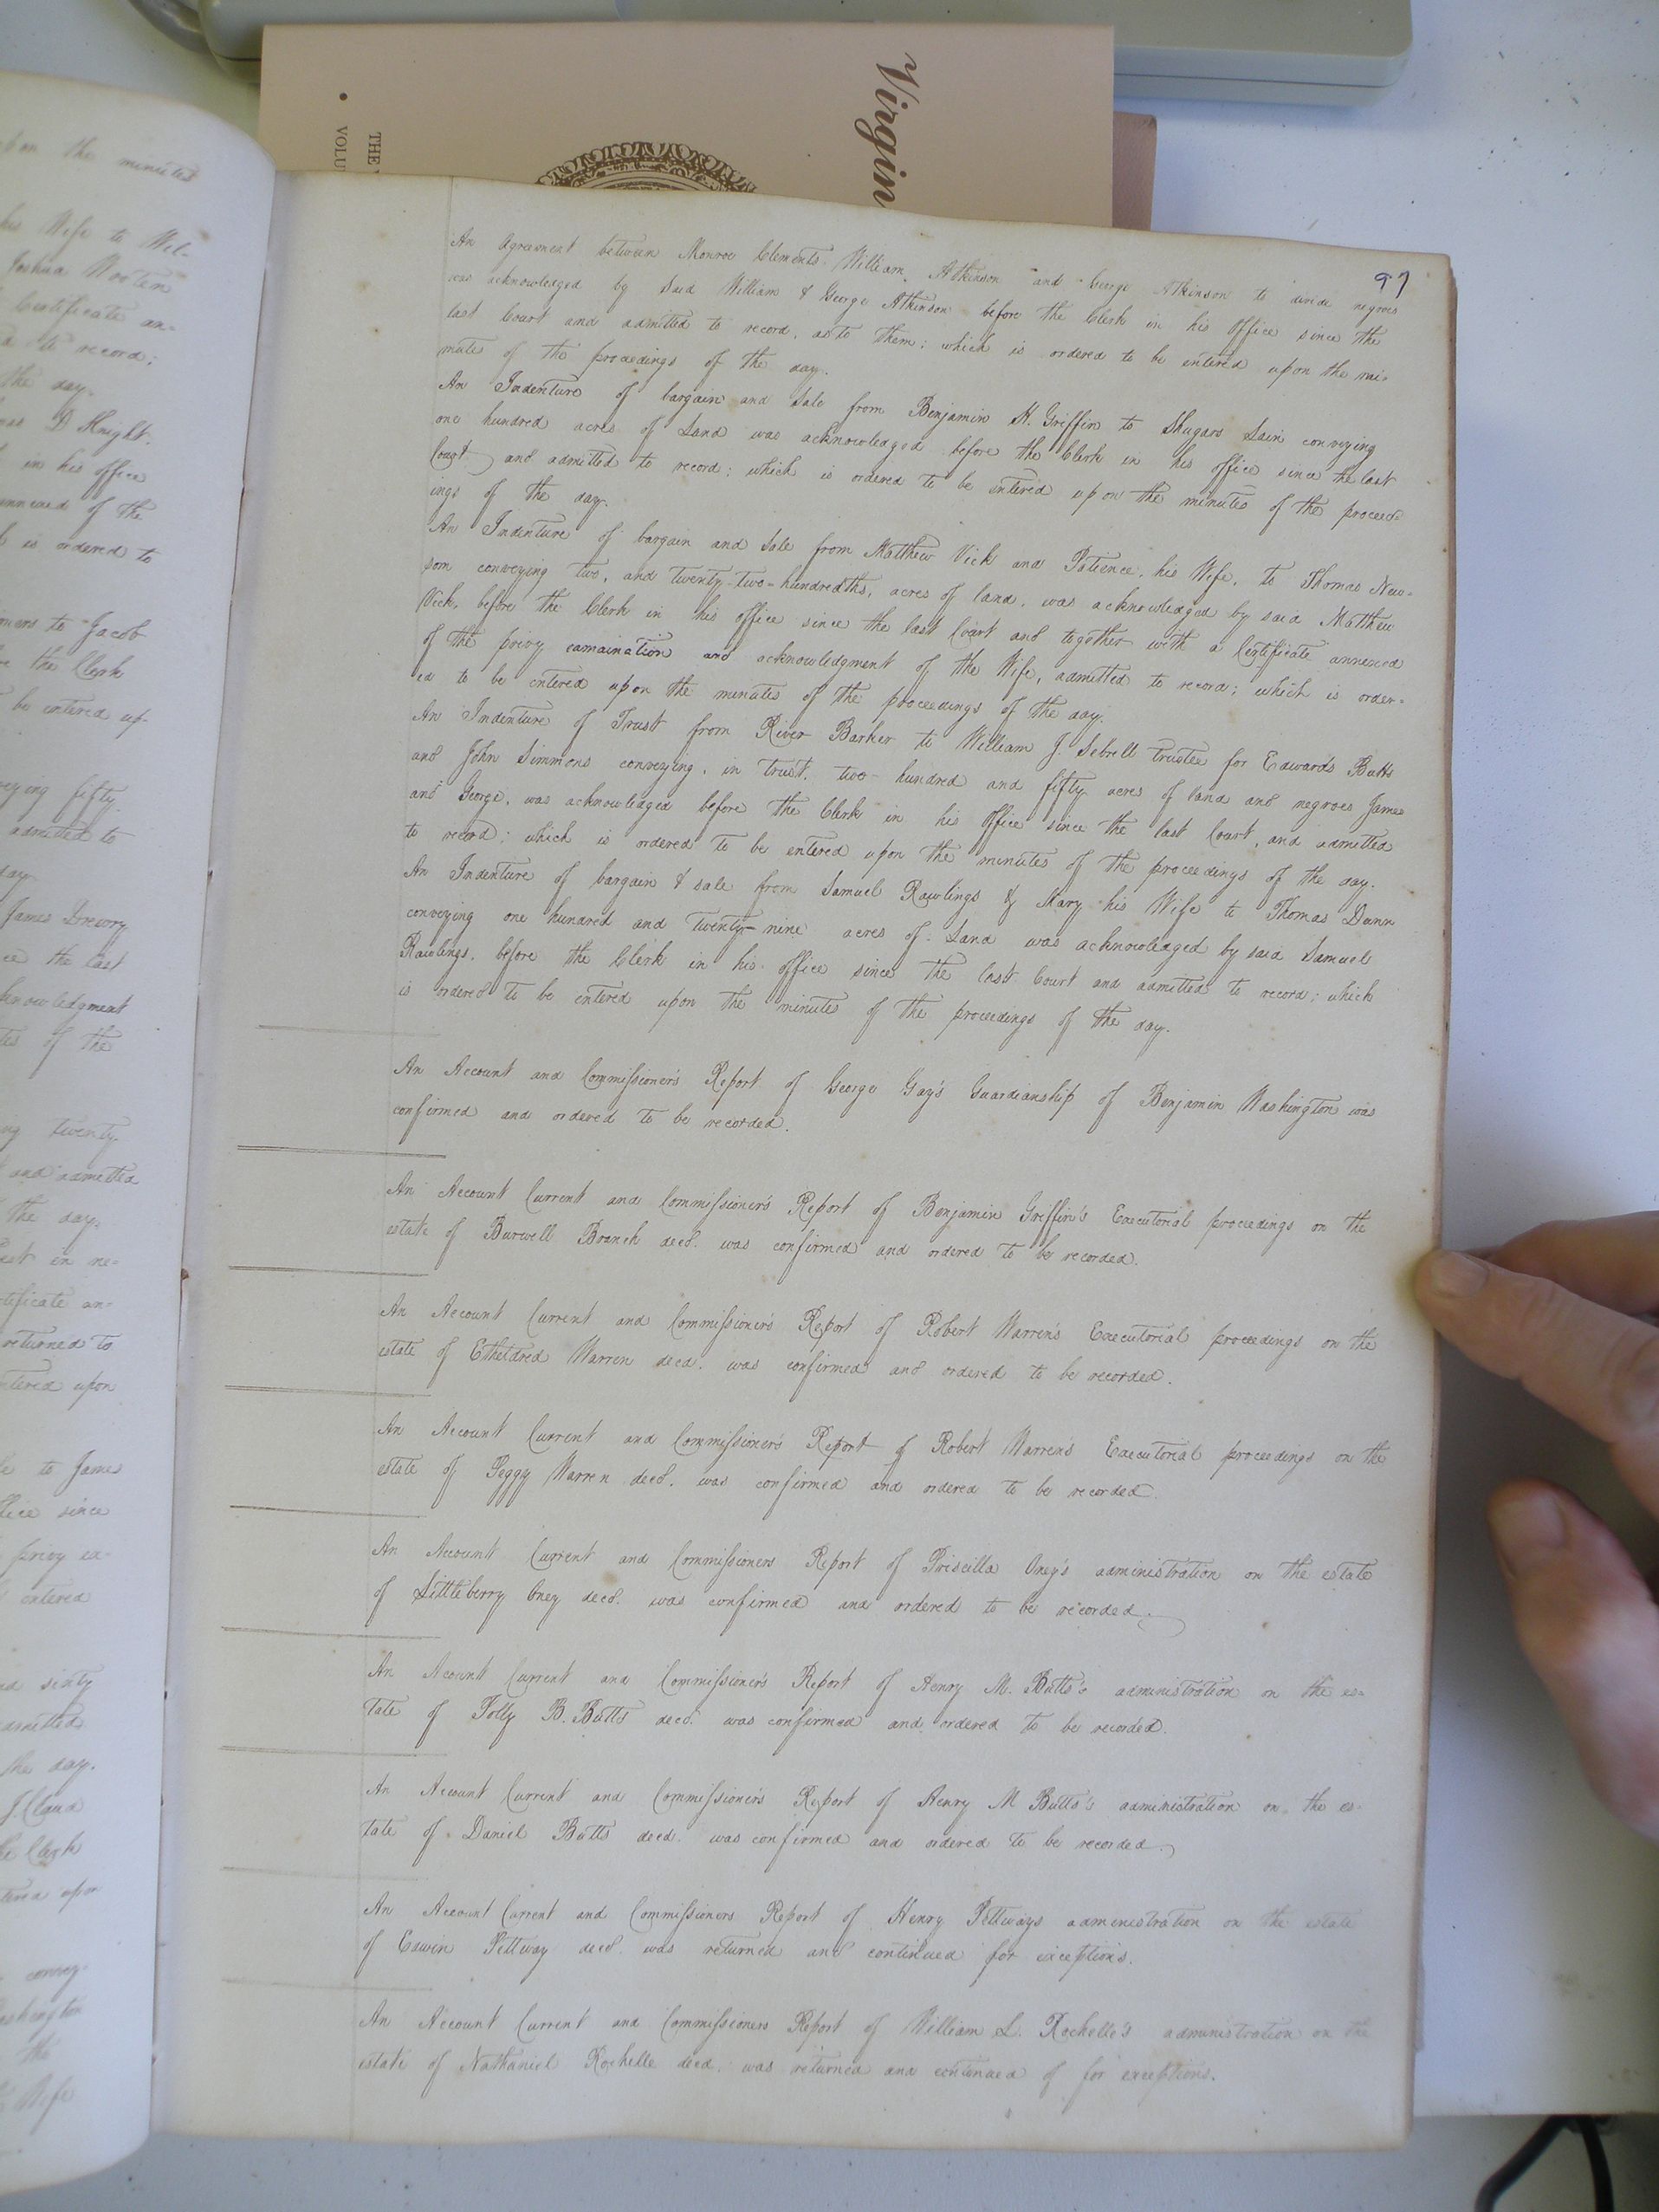 Virgin
THE
VOLU
97
An Agreement between Monroe Clements William Atkinson and George Atkinson to divide negroes
was acknowledged by said William & George Atkinson before the Clerk in his Office since the
last Court and admitted to record, as to them; which is ordered to be entered upon the mi-
nutes of the proceedings of the day.
An Indenture of bargain and Sale from Benjamin H. Griffin to Shugars Lain conveying
one hundred acres of Land was acknowledged before the Clerk in his office since the last
Court and admitted to record; which is ordered to be entered upon the minutes of the proceed-
ings of the day.
An Indenture of bargain and Sale from Matthew Vick and Patience, his Wife, to Thomas New-
som conveying two, and twenty-two-hundredths, acres of land, was acknowledged by said Matthew
Vick, before the Clerk in his office since the last Court and together with a Certificate annexed
of the privy examaination and acknowledgment of the Wife, admitted to record; which is order-
ed to be entered upon the minutes of the proceedings of the day.
An Indenture of Trust from River Barker to William J. Sebrell trustee for Edwards Butts
and John Simmons conveying, in trust, two hundred and fifty acres of land and negroes James
and George, was acknowledged before the Clerk in his Office since the last Court, and admitted
to record; which is ordered to be entered upon the minutes of the proceedings of the day.
An Indenture of bargain & sale from Samuel Rawlings & Mary his Wife to Thomas Dunn
conveying one hundred and twenty-nine acres of Land was acknowledged by said Samuel
Rawlings, before the Clerk in his office since the last Court and admitted to record; which
is ordered to be entered upon the minutes of the proceedings of the day.
An Account and Commissioner's Report of George Gay's Guardianship of Benjamin Washington was
confirmed and ordered to be recorded.
An Account Current and Commissioner's Report of Benjamin Griffin's Executorial proceedings on the
estate of Burwell Branch decd. was confirmed and ordered to be recorded.
An Account Current and Commissioner's Report of Robert Warren's Executorial proceedings on the
estate of Etheldred Warren decd. was confirmed and ordered to be recorded.
An Account Current and Commissioner's Report of Robert Warren's Executorial proceedings on the
estate of Peggy Warren decd. was confirmed and ordered to be recorded.
An Account Current and Commissioners Report of Priscilla Oney's administration on the estate
of Littleberry Oney decd. was confirmed and ordered to be recorded.
An Account Current and Commissioner's Report of Henry M. Butts's administration on the es-
tate of Polly B. Butts decd. was confirmed and ordered to be recorded.
An Account Current and Commissioner's Report of Henry M Butts's administration on the es-
tate of Daniel Butts decd. was confirmed and ordered to be recorded.
An Account Current and Commissioners Report of Henry Pettways administration on the estate
of Edwin Pettway decd. was returned and continued for exceptions.
An Account Current and Commissioners Report of William L. Rochelle's administration on the
estate of Nathaniel Rochelle decd. was returned and continued of for exceptions.